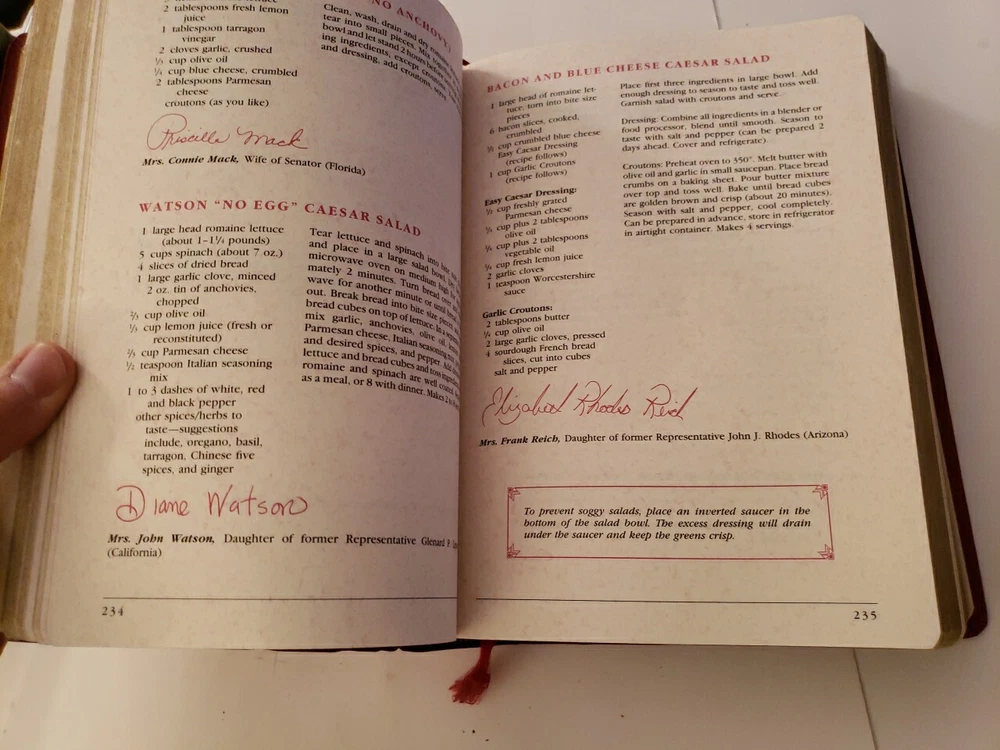 NO ANCHOVY)
2 tablespoons fresh lemon
juice
1 tablespoon tarragon
vinegar
2 cloves garlic, crushed
⅓ cup olive oil
¼ cup blue cheese, crumbled
2 tablespoons Parmesan
cheese
croutons (as you like)
Clean, wash, drain and dry
tear into small pieces. Mix
bowl and let stand 2 hours before
ing ingredients, except croutons,
and dressing, add croutons, serve
Priscilla Mack
Mrs. Connie Mack, Wife of Senator (Florida)
WATSON “NO EGG” CAESAR SALAD
1 large head romaine lettuce
(about 1–1¼ pounds)
5 cups spinach (about 7 oz.)
4 slices of dried bread
1 large garlic clove, minced
2 oz. tin of anchovies,
chopped
⅔ cup olive oil
⅓ cup lemon juice (fresh or
reconstituted)
⅔ cup Parmesan cheese
½ teaspoon Italian seasoning
mix
1 to 3 dashes of white, red
and black pepper
other spices/herbs to
taste—suggestions
include, oregano, basil,
tarragon, Chinese five
spices, and ginger
Tear lettuce and spinach into
and place in a large salad bowl.
microwave oven on medium high
mately 2 minutes. Turn bread over
wave for another minute or until bread
out. Break bread into bite size pieces
bread cubes on top of lettuce. In a separate
mix garlic, anchovies, olive oil, lemon
Parmesan cheese, Italian seasoning mix
and desired spices, and pepper. Add
lettuce and bread cubes and toss
romaine and spinach are well coated.
as a meal, or 8 with dinner. Makes
Diane Watson
Mrs. John Watson, Daughter of former Representative Glenard P.
(California)
234
BACON AND BLUE CHEESE CAESAR SALAD
1 large head of romaine let-
tuce, torn into bite size
pieces
6 bacon slices, cooked,
crumbled
½ cup crumbled blue cheese
Easy Caesar Dressing
(recipe follows)
1 cup Garlic Croutons
(recipe follows)
Easy Caesar Dressing:
½ cup freshly grated
Parmesan cheese
cup plus 2 tablespoons
olive oil
cup plus 2 tablespoons
vegetable oil
¼ cup fresh lemon juice
2 garlic cloves
1 teaspoon Worcestershire
sauce
Garlic Croutons:
2 tablespoons butter
¼ cup olive oil
2 large garlic cloves, pressed
4 sourdough French bread
slices, cut into cubes
salt and pepper
Place first three ingredients in large bowl. Add
enough dressing to season to taste and toss well.
Garnish salad with croutons and serve.
Dressing: Combine all ingredients in a blender or
food processor, blend until smooth. Season to
taste with salt and pepper (can be prepared 2
days ahead. Cover and refrigerate).
Croutons: Preheat oven to 350°. Melt butter with
olive oil and garlic in small saucepan. Place bread
crumbs on a baking sheet. Pour butter mixture
over top and toss well. Bake until bread cubes
are golden brown and crisp (about 20 minutes).
Season with salt and pepper, cool completely.
Can be prepared in advance, store in refrigerator
in airtight container. Makes 4 servings.
Elizabeth Rhodes Reich
Mrs. Frank Reich, Daughter of former Representative John J. Rhodes (Arizona)
To prevent soggy salads, place an inverted saucer in the
bottom of the salad bowl. The excess dressing will drain
under the saucer and keep the greens crisp.
235